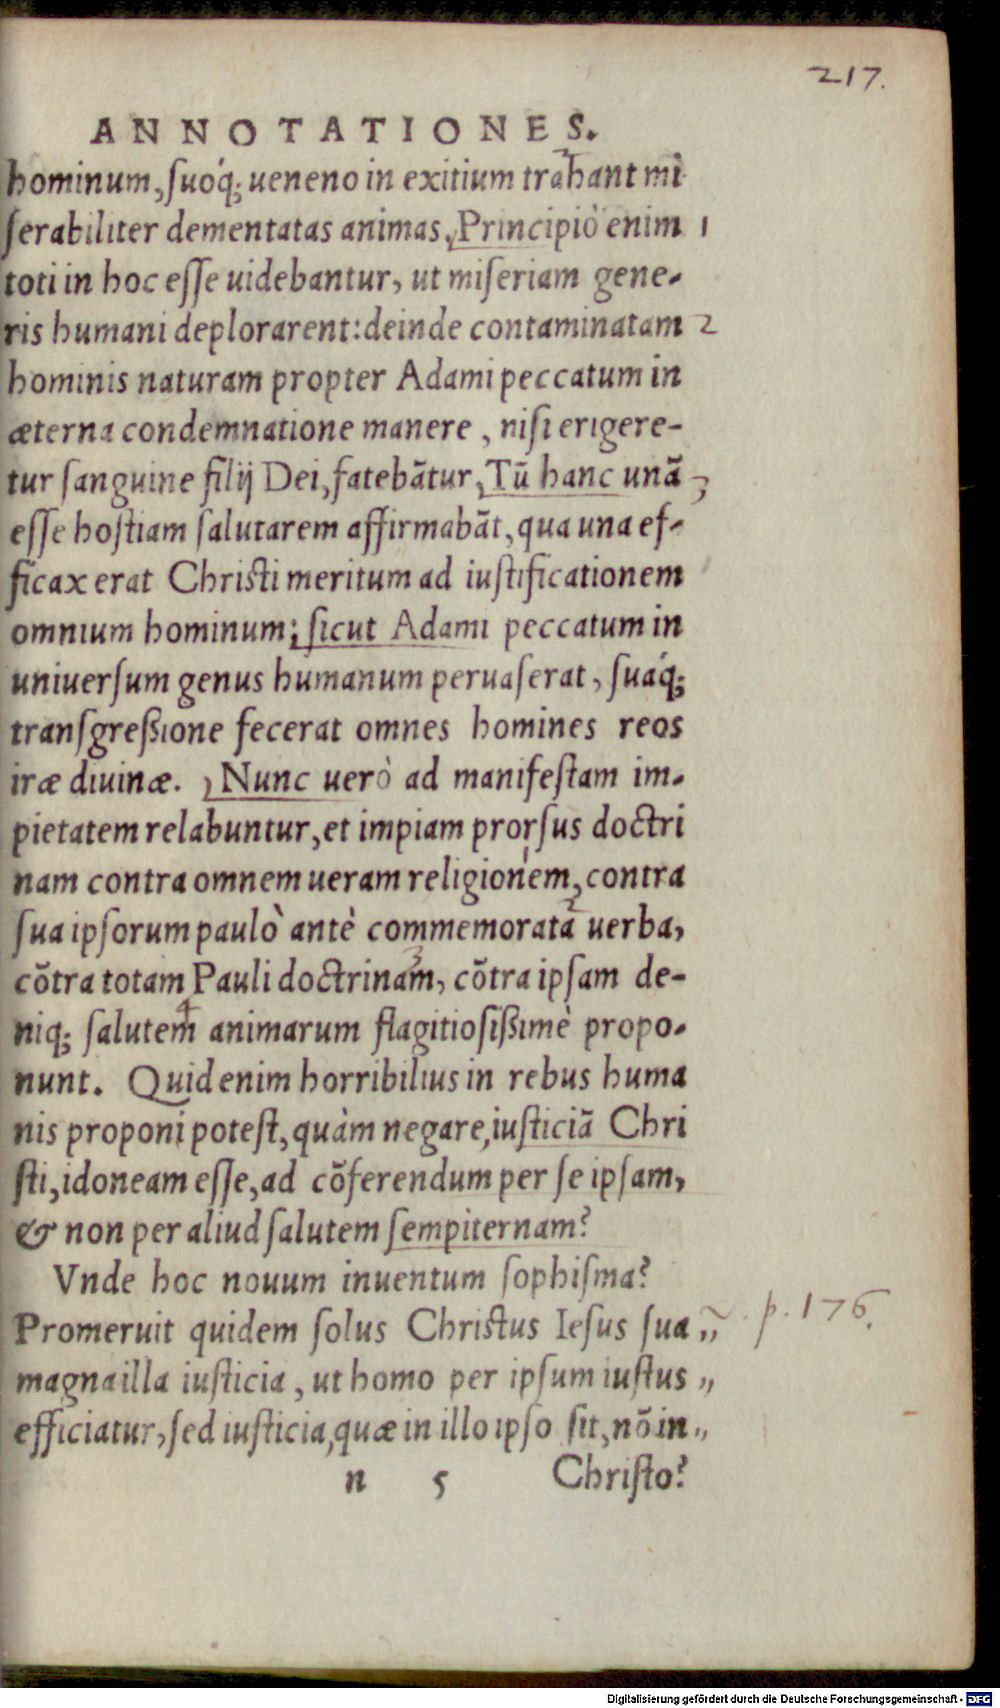 217.
ANNOTATIONES.
hominum, ſuóq; ueneno in exitium trahant mi
ſerabiliter dementatas animas, Principiò enim 1
toti in hoc eſſe uidebantur, ut miſeriam gene-
ris humani deplorarent: deinde contaminatam 2
hominis naturam propter Adami peccatum in
æterna condemnatione manere, niſi erigere-
tur ſanguine filij Dei, fatebātur, Tū hanc unā 3
eſſe hoſtiam ſalutarem affirmabāt, qua una ef-
ficax erat Chriſti meritum ad iuſtificationem
omnium hominum; ſicut Adami peccatum in
uniuerſum genus humanum peruaſerat, ſuáq;
tranſgreßione fecerat omnes homines reos
iræ diuinæ. Nunc uerò ad manifeſtam im-
pietatem relabuntur, et impiam prorſus doctri
nam contra omnem ueram religionem, contra
1
ſua ipſorum paulò antè commemorata uerba,
2
cōtra totam Pauli doctrinam, cōtra ipſam de-
3
niq; ſalutem animarum flagitioſißimè propo-
4
nunt. Quid enim horribilius in rebus huma
nis proponi poteſt, quàm negare, iuſticiā Chri
ſti, idoneam eſſe, ad cōferendum per ſe ipſam,
& non per aliud ſalutem ſempiternam?
Vnde hoc nouum inuentum ſophiſma?
Promeruit quidem ſolus Chriſtus Ieſus ſua „ p. 176.
magna illa iuſticia, ut homo per ipſum iuſtus „
efficiatur, ſed iuſticia, quæ in illo ipſo ſit, nō in „
n 5 Chriſto?
Digitalisierung gefördert durch die Deutsche Forschungsgemeinschaft - DFG